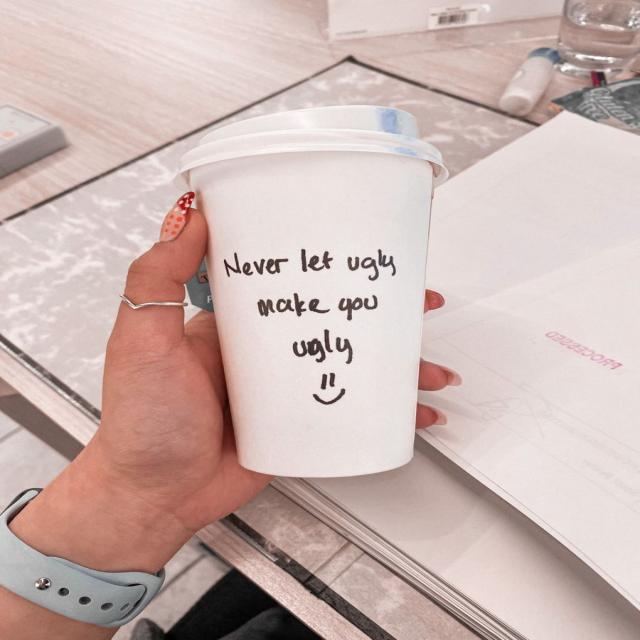 Never let ugly
make you
ugly
PROCESSED